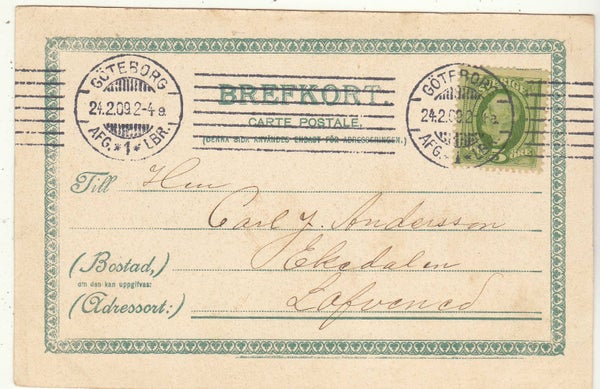 GÖTEBORG
24.2.09 2-4 a.
AFG. *1* LBR.
GÖTEBORG
24.2.09 2-4 a.
AFG. *1* LBR.
BREFKORT.
CARTE POSTALE.
(DENNA SIDA ANVÄNDES ENDAST FÖR ADRESSERINGEN.)
5 ÖRE
Till Herr
Carl J. Andersson
(Bostad,) Ekedalen
om den kan uppgifvas:
(Adressort:) Lofvened